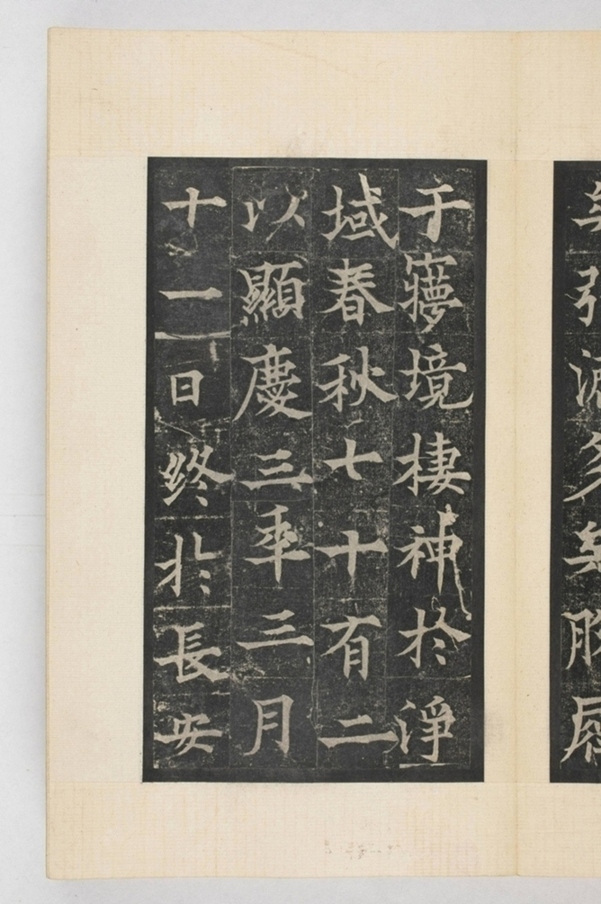 于㝱境棲神於淨
域春秋七十有二
以顯慶三年三月
十一日終於長安